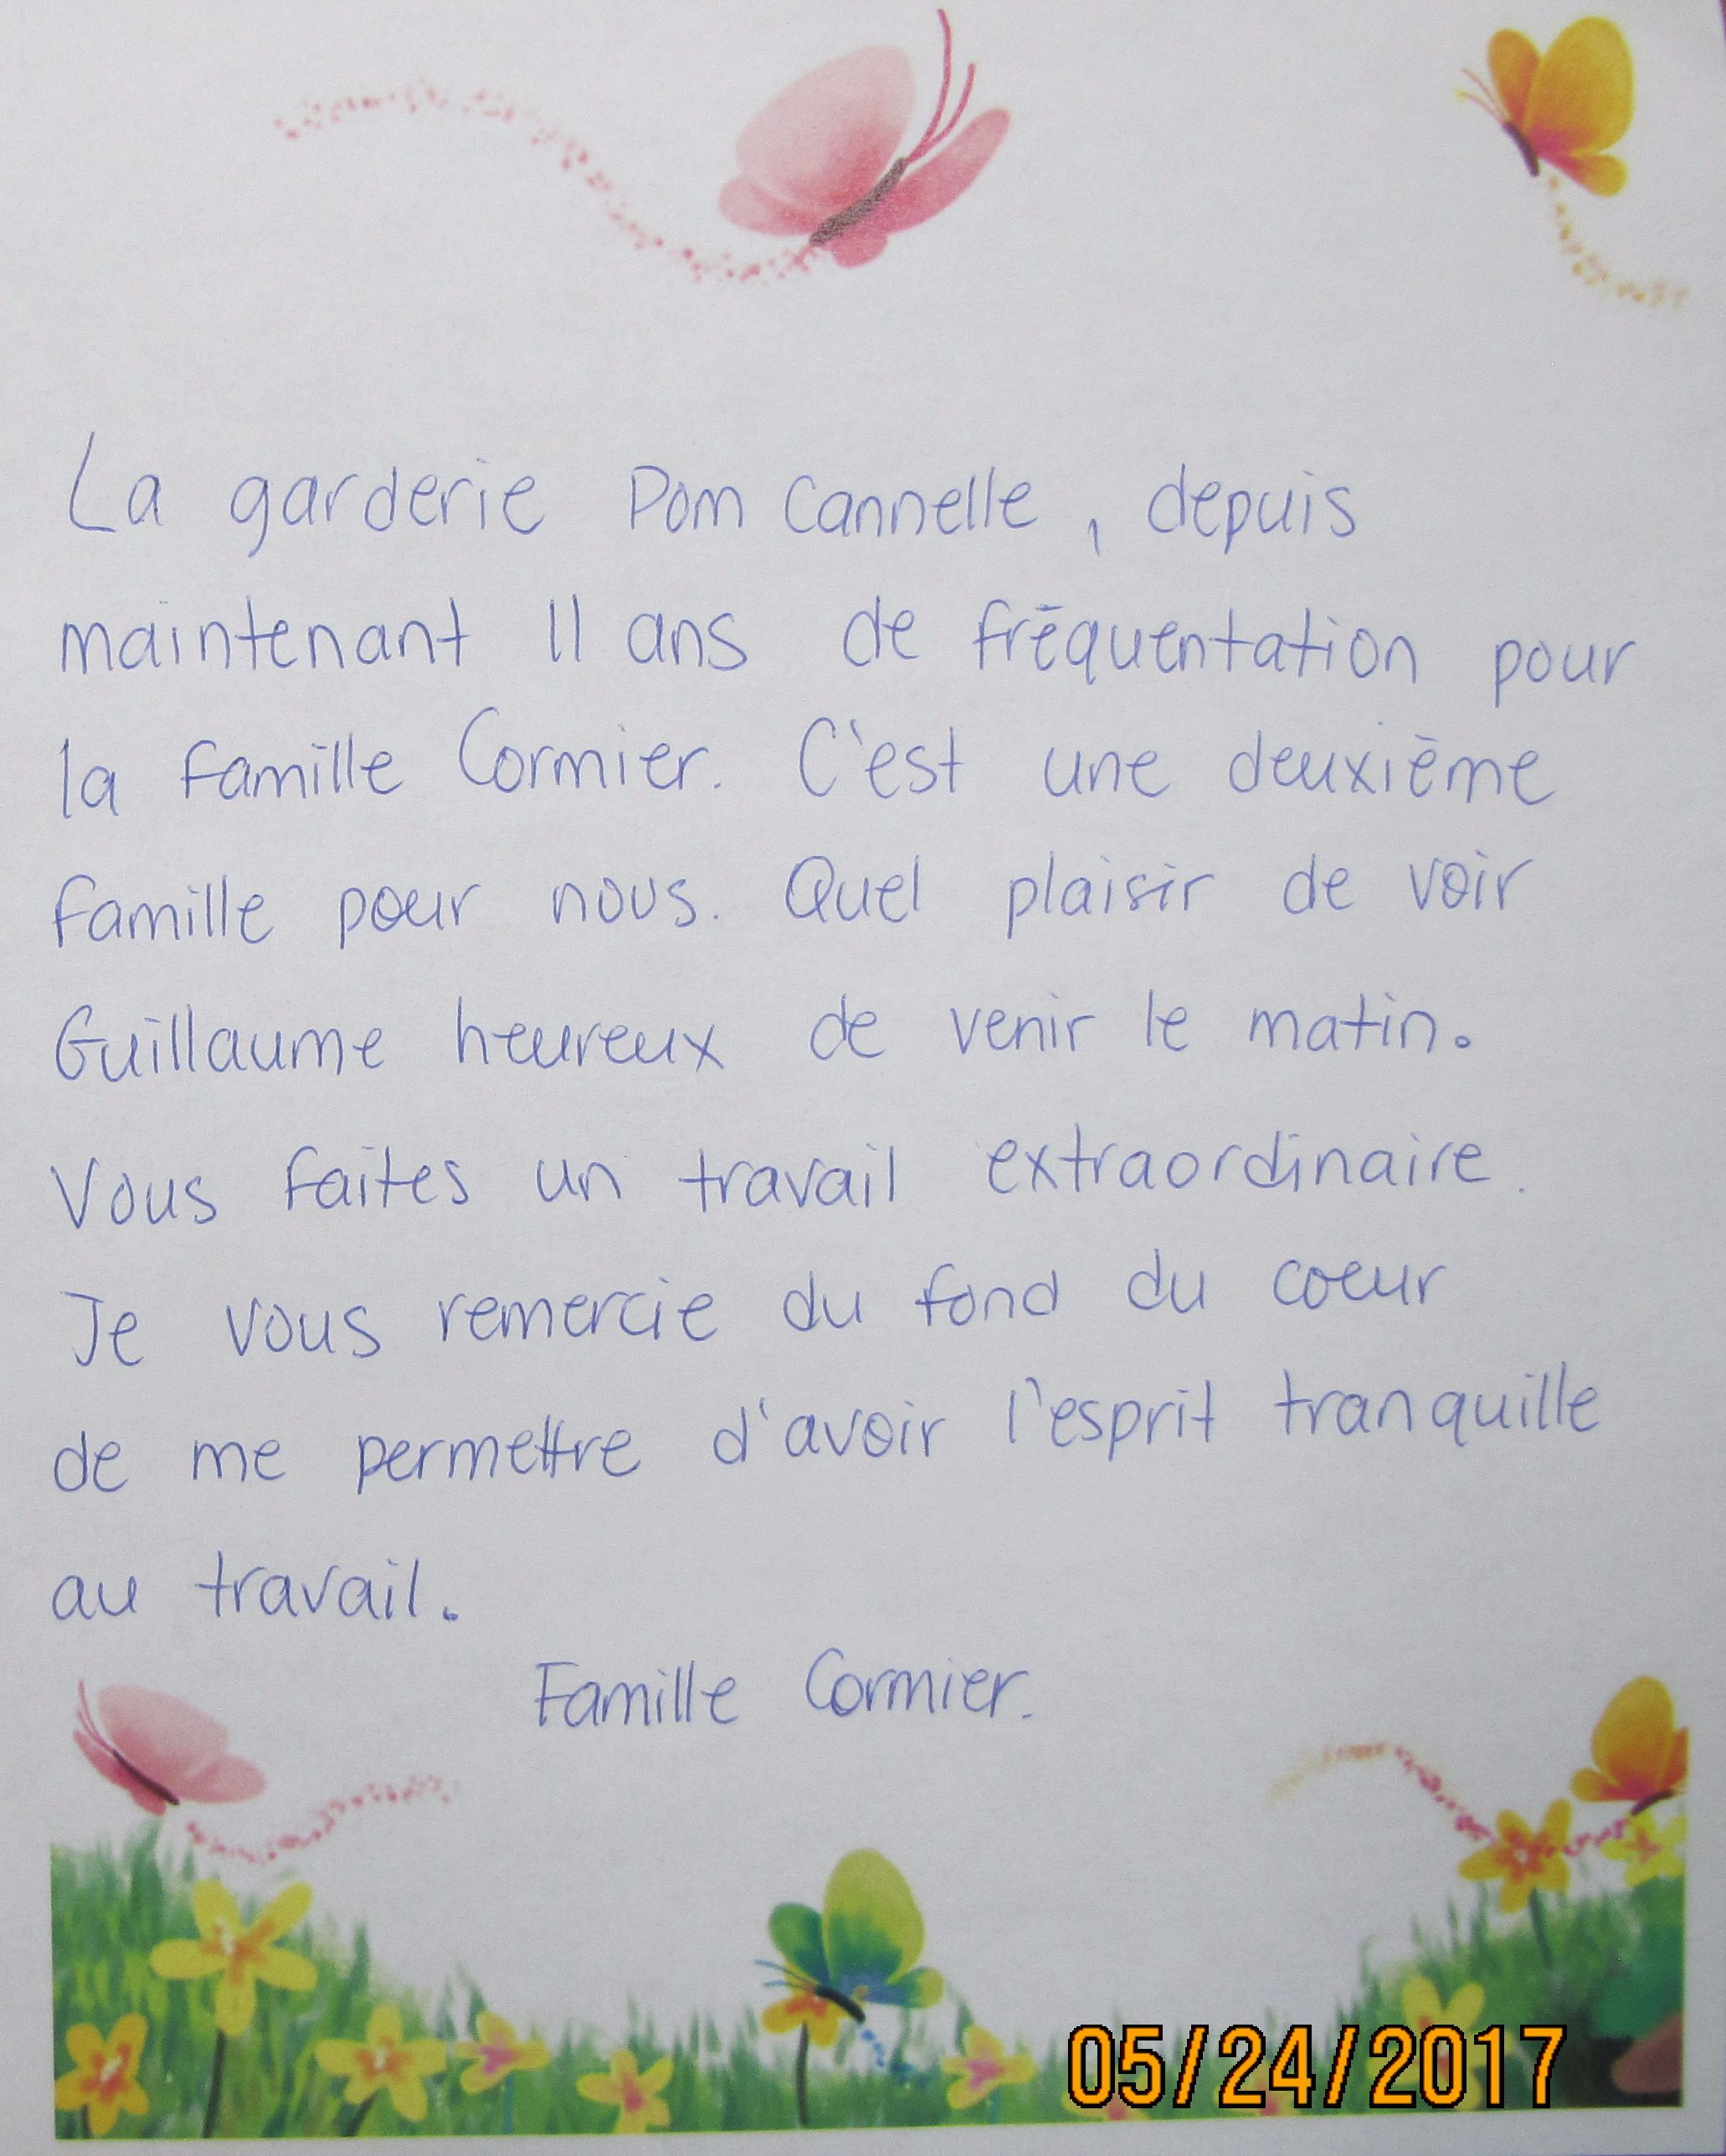 La garderie Pom Cannelle, depuis
maintenant 11 ans de fréquentation pour
la famille Cormier. C'est une deuxième
famille pour nous. Quel plaisir de voir
Guillaume heureux de venir le matin.
Vous faites un travail extraordinaire.
Je vous remercie du fond du coeur
de me permettre d'avoir l'esprit tranquille
au travail.
Famille Cormier.
05/24/2017